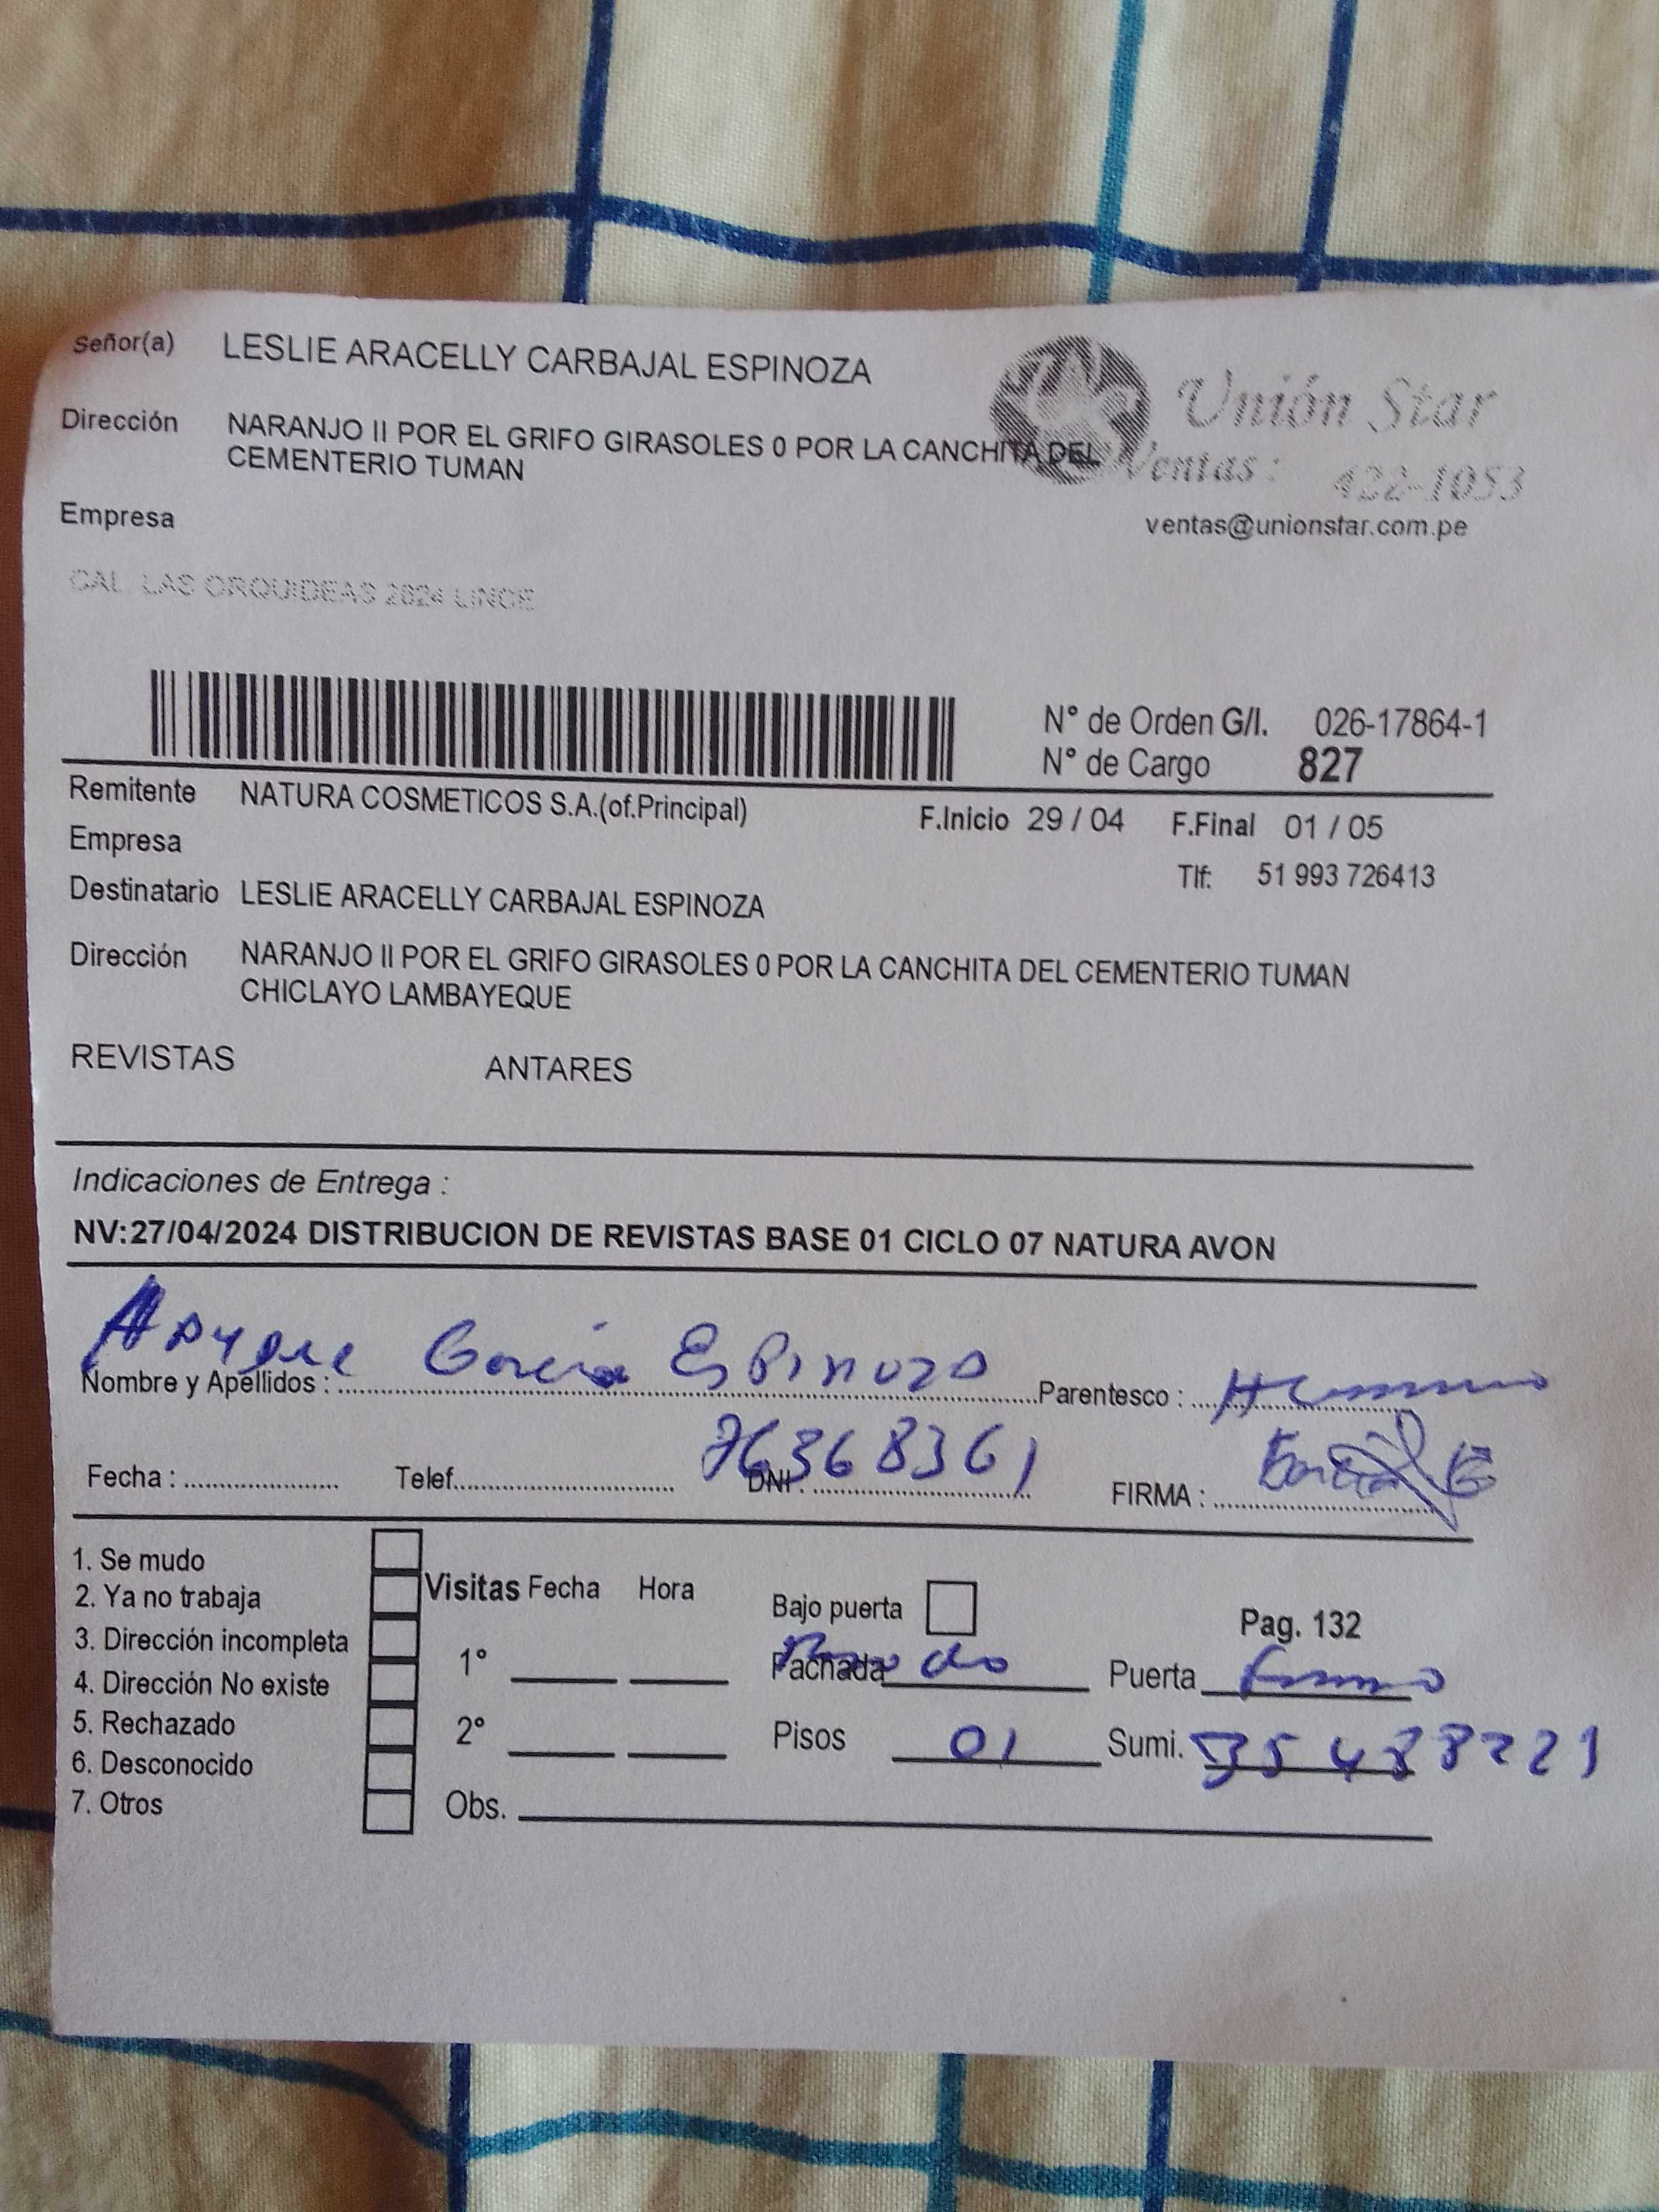 Señor(a) LESLIE ARACELLY CARBAJAL ESPINOZA
Unión Star
Dirección NARANJO II POR EL GRIFO GIRASOLES 0 POR LA CANCHITA DEL
CEMENTERIO TUMAN
Ventas: 422-1053
Empresa
ventas@unionstar.com.pe
CAL LAS ORQUIDEAS 2624 LINCE
N° de Orden G/I. 026-17864-1
N° de Cargo 827
Remitente NATURA COSMETICOS S.A.(of.Principal) F.Inicio 29 / 04 F.Final 01 / 05
Empresa
Tlf: 51 993 726413
Destinatario LESLIE ARACELLY CARBAJAL ESPINOZA
Dirección NARANJO II POR EL GRIFO GIRASOLES 0 POR LA CANCHITA DEL CEMENTERIO TUMAN
CHICLAYO LAMBAYEQUE
REVISTAS ANTARES
Indicaciones de Entrega :
NV:27/04/2024 DISTRIBUCION DE REVISTAS BASE 01 CICLO 07 NATURA AVON
Nombre y Apellidos : Garcia Espinoza Parentesco : Hermano
Fecha : Telef. DNI : 76368361 FIRMA :
1. Se mudo
2. Ya no trabaja
3. Dirección incompleta
4. Dirección No existe
5. Rechazado
6. Desconocido
7. Otros
Visitas Fecha Hora
1°
2°
Obs.
Bajo puerta
Pag. 132
Fachada Puerta
Pisos 01 Sumi. 35488221